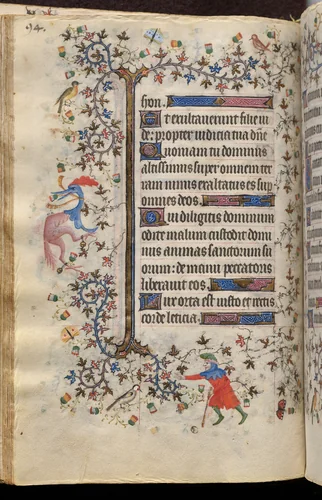 94.
syon.
Et exultaverunt filie iu
de: propter iudicia tua dñe
Quoniam tu dominus
altissimus super omnem ter
ram nimis exaltatus es sup
omnes deos.
Qui diligitis dominum
odite malum custodit domi
nus animas sanctorum su
orum: de manu peccatoris
liberavit eos.
Lux orta est iusto et rectis
corde leticia.